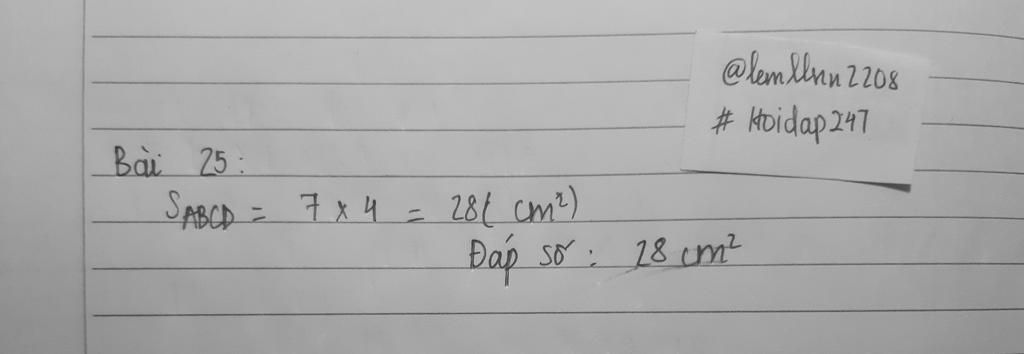 @lemllnn2208
# Hoidap247
Bài 25:
SABCD = 7 x 4 = 28( cm²)
Đáp số: 28 cm²